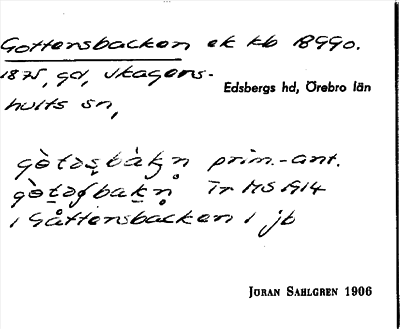 Gottensbacken ek kb 8990.
1875, gd, Skagers-
hults sn,
Edsbergs hd, Örebro län
prim.-ant.
Tr MS 1914
i Gåttensbacken i jb
JÖRAN SAHLGREN 1906